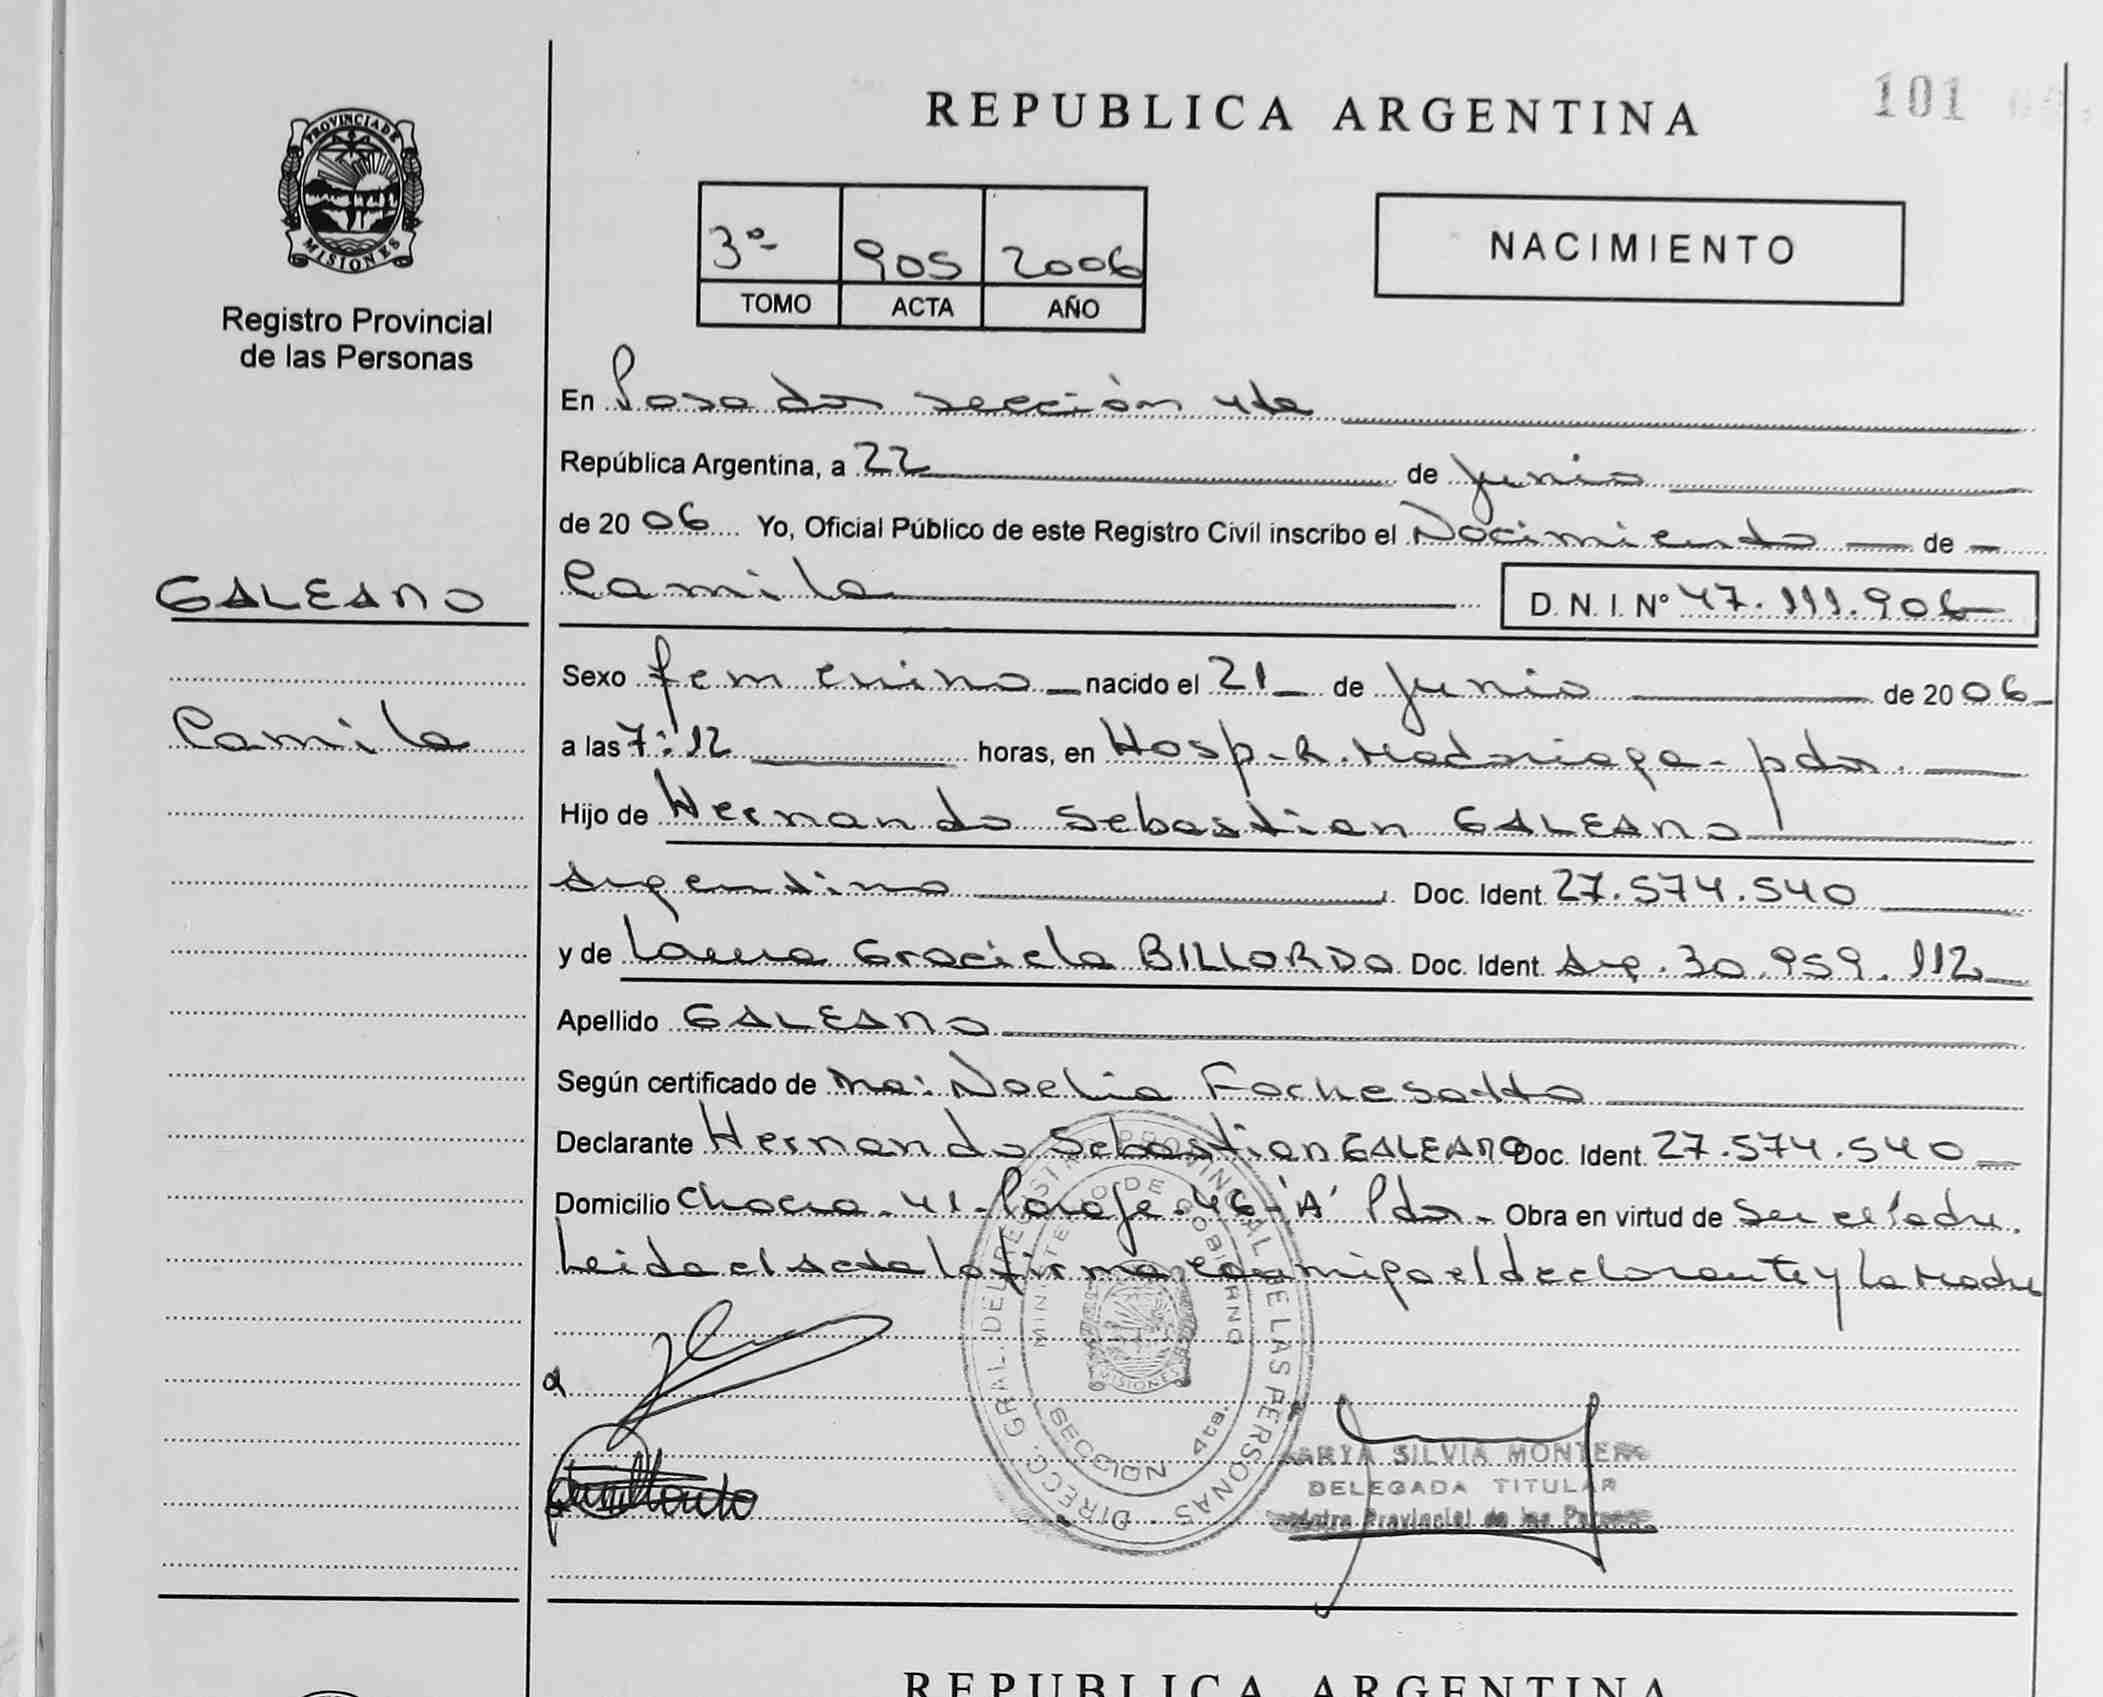 REPUBLICA ARGENTINA
101
PROVINCIA DE
MISIONES
Registro Provincial
de las Personas
3º 905 2006
TOMO ACTA AÑO
NACIMIENTO
En Posadas sección 4ta
República Argentina, a 22 de junio
de 20 06 Yo, Oficial Público de este Registro Civil inscribo el Nacimiento de
GALEANO
Camila D. N. I. Nº 47.111.906
Sexo femenino nacido el 21 de junio de 20 06
Camila
a las 7:12 horas, en Hosp. R. Madariaga - pdas.
Hijo de Hernando Sebastian GALEANO
Argentino Doc. Ident. 27.574.540
y de Laura Graciela BILLORDO Doc. Ident. Arg. 30.959.112
Apellido GALEANO
Según certificado de Noelia Fochesatto
Declarante Hernando Sebastian GALEANO Doc. Ident. 27.574.540
Domicilio Chacra. 41 - Pasaje. 46 - 'A' Pdas. Obra en virtud de Ser el Padre.
Leida el Acta la firma conmigo el declarante y la Madre
DIRECC. GRAL. DEL REGISTRO PROVINCIAL DE LAS PERSONAS
MINISTERIO DE GOBIERNO
MISIONES
SECCION 4ta.
SILVIA MONTERO
DELEGADA TITULAR
Provincial de las
REPUBLICA ARGENTINA